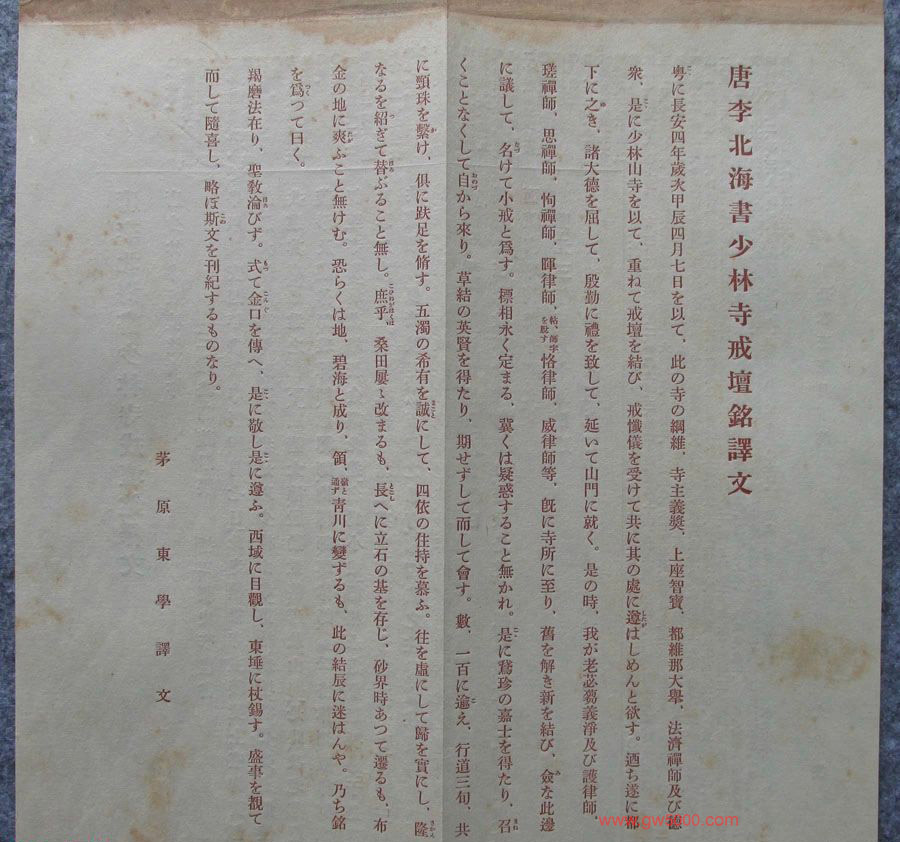 唐李北海書少林寺戒壇銘譯文
粤に長安四年歲次甲辰四月七日を以て、此の寺の綱維、寺主義奬、上座智寶、都維那大擧、法濟禪師及び德
衆、是に少林山寺を以て、重ねて戒壇を結び、戒懺儀を受けて共に其の處に遵はしめんと欲す。迺ち遂に都
下に之き、諸大德を屈して、殷勤に禮を致して、延いて山門に就く。是の時、我が老苾蒭義淨及び護律師、
瑳禪師、思禪師、恂禪師、暉律師、帖、師字を脫す恪律師、威律師等、旣に寺所に至り、舊を解き新を結び、僉な此邊
に議して、名けて小戒と爲す。標相永く定まる、冀くは疑惑すること無かれ。是に鵞珍の嘉士を得たり、召
くことなくして自から來り。草結の英賢を得たり、期せずして而して會す。數、一百に逾え、行道三旬、共
に頸珠を繫け、俱に趺足を脩す。五濁の希有を誠にして、四依の住持を慕ふ。往を虛にして歸を實にし、隆
なるを紹ぎて替ぶること無し。庶乎、桑田屢〻改まるも、長へに立石の基を存し、砂界時あつて遷るも、布
金の地に爽ふこと無けむ。恐らくは地、碧海と成り、領、嶺と通ず靑川に變ずるも、此の結辰に迷はんや。乃ち銘
を爲つて曰く。
羯磨法在り、聖敎淪びず。式て金口を傳へ、是に敬し是に遵ふ。西域に目觀し、東埵に杖錫す。盛事を觀て
而して隨喜し、略ぼ斯文を刊紀するものなり。
茅原東學譯文